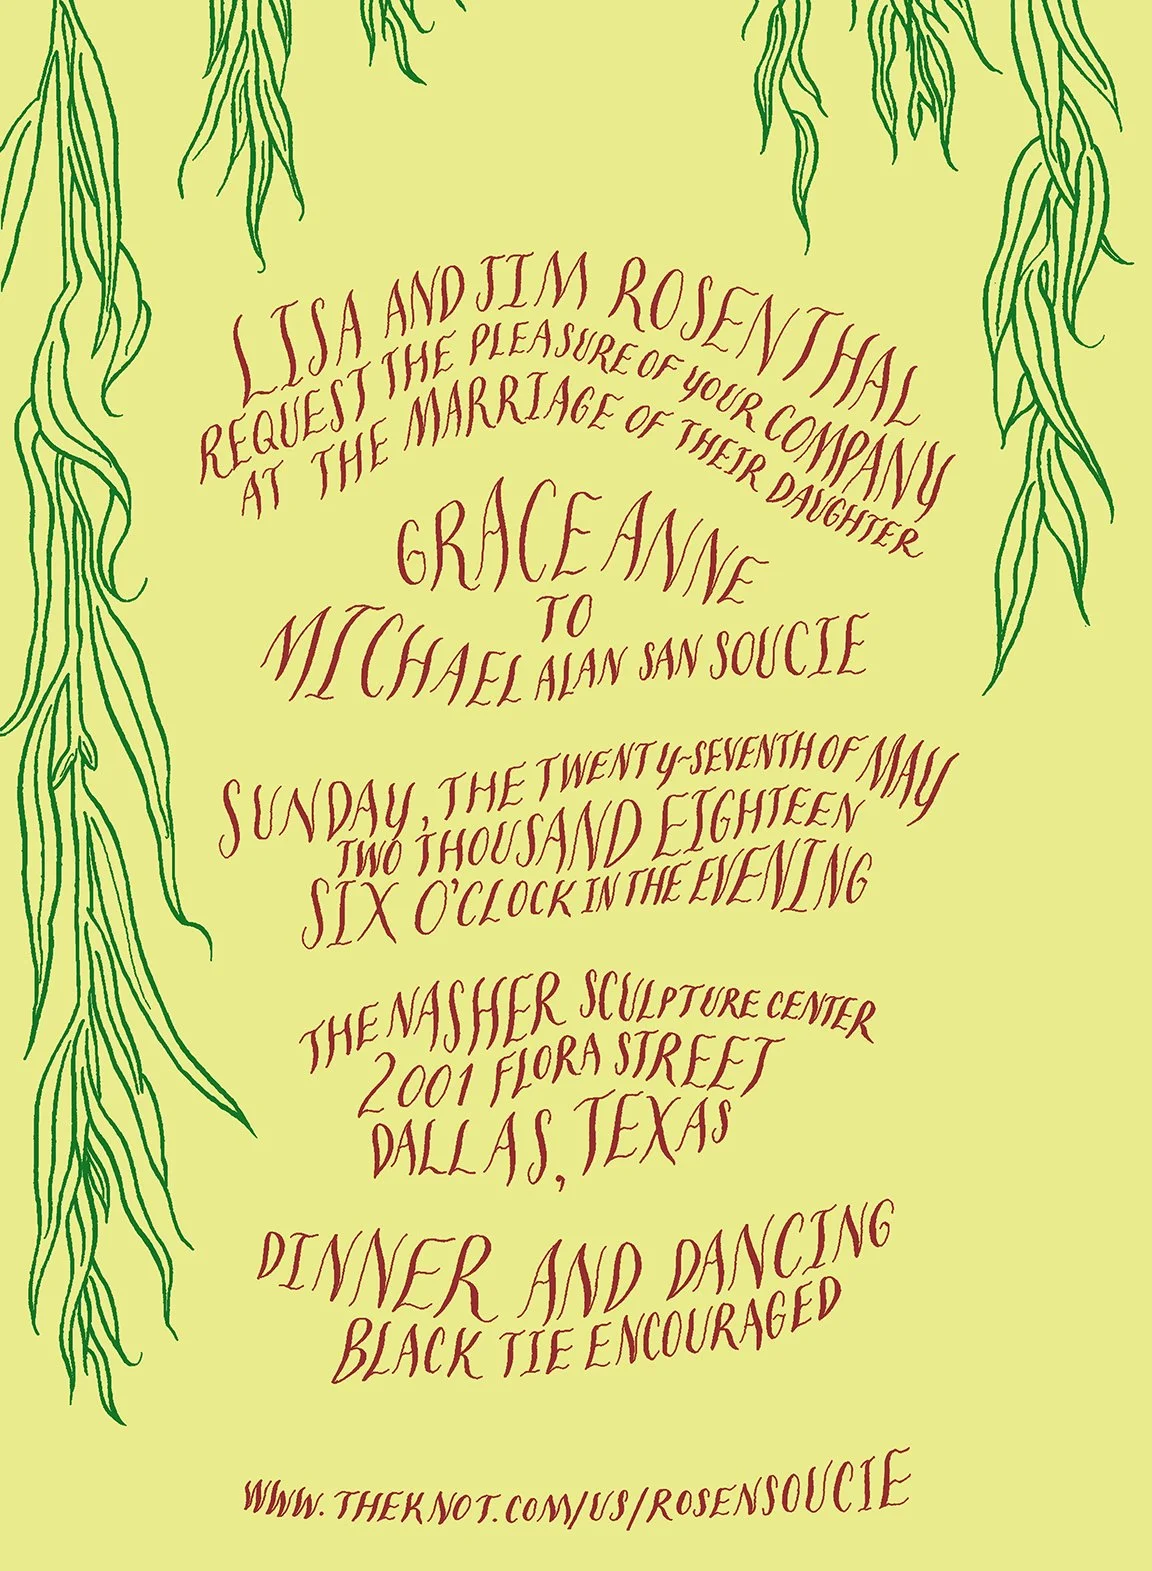 LISA AND JIM ROSENTHAL
REQUEST THE PLEASURE OF YOUR COMPANY
AT THE MARRIAGE OF THEIR DAUGHTER
GRACE ANNE
TO
MICHAEL ALAN SAN SOUCIE
SUNDAY, THE TWENTY-SEVENTH OF MAY
TWO THOUSAND EIGHTEEN
SIX O'CLOCK IN THE EVENING
THE NASHER SCULPTURE CENTER
2001 FLORA STREET
DALLAS, TEXAS
DINNER AND DANCING
BLACK TIE ENCOURAGED
WWW.THEKNOT.COM/US/ROSENSOUCIE